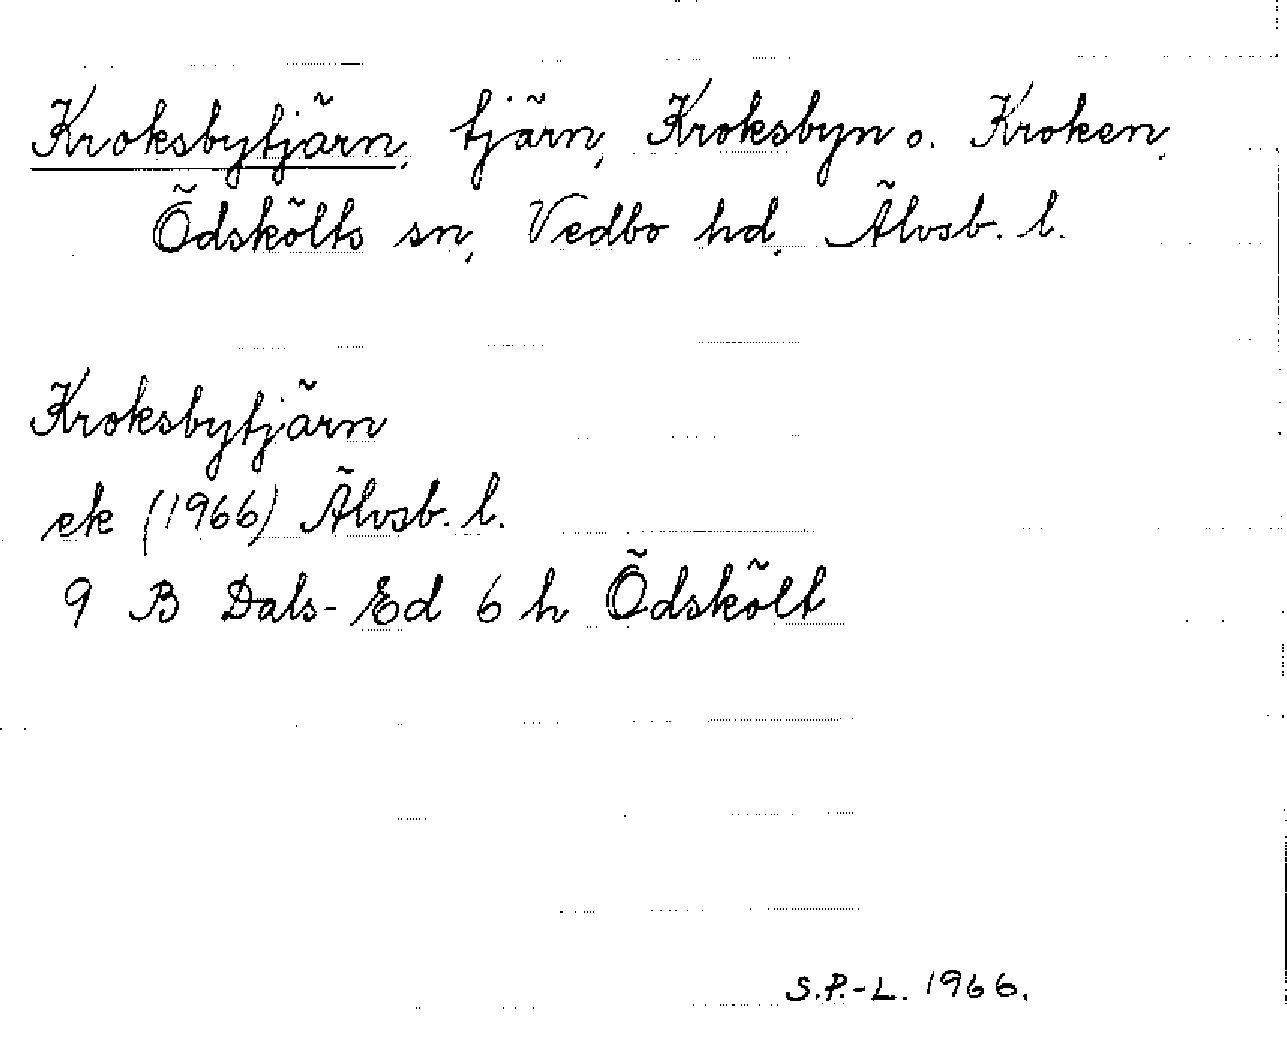 Kroksbytjärn, tjärn, Kroksbyn o. Kroken,
Ödskölts sn, Vedbo hd, Älvsb. l.
Kroksbytjärn
ek (1966) Älvsb. l.
9 B Dals-Ed 6 h Ödskölt
S.P.-L. 1966.